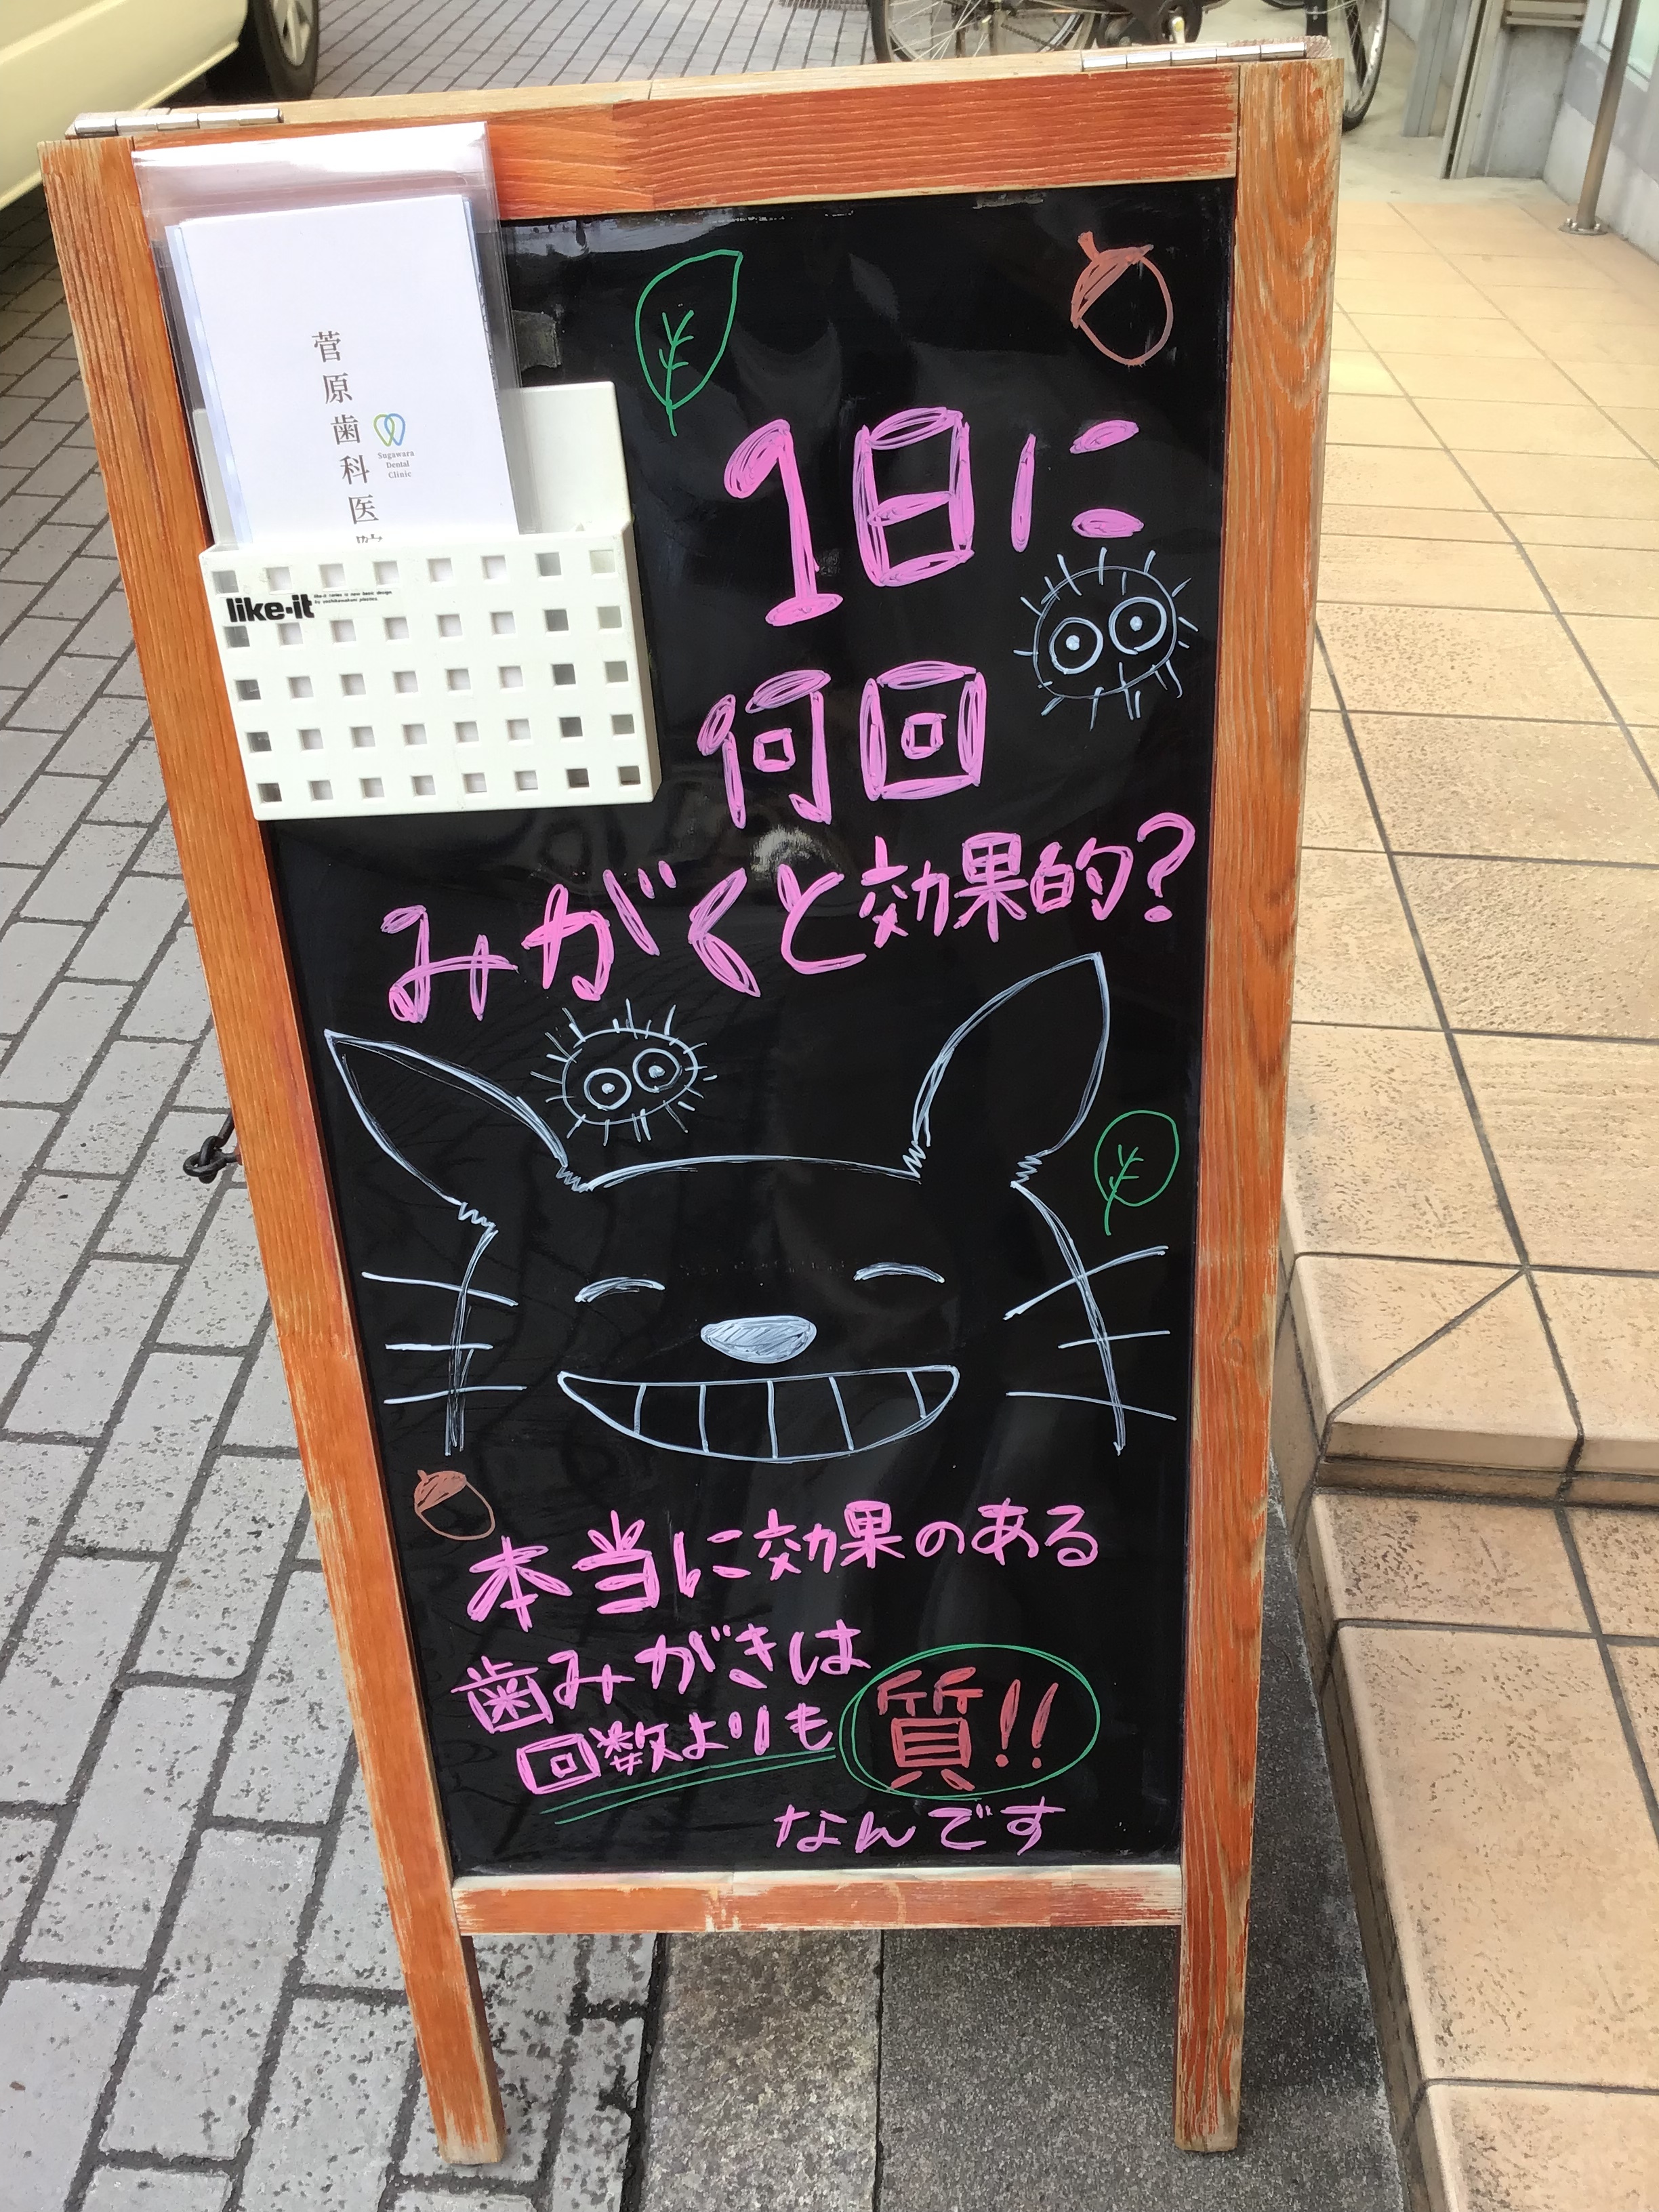 菅原歯科医院
Sugawara
Dental
Clinic
like-it
1日に
何回
みがくと効果的?
本当に効果のある
歯みがきは
回数よりも 質!!
なんです